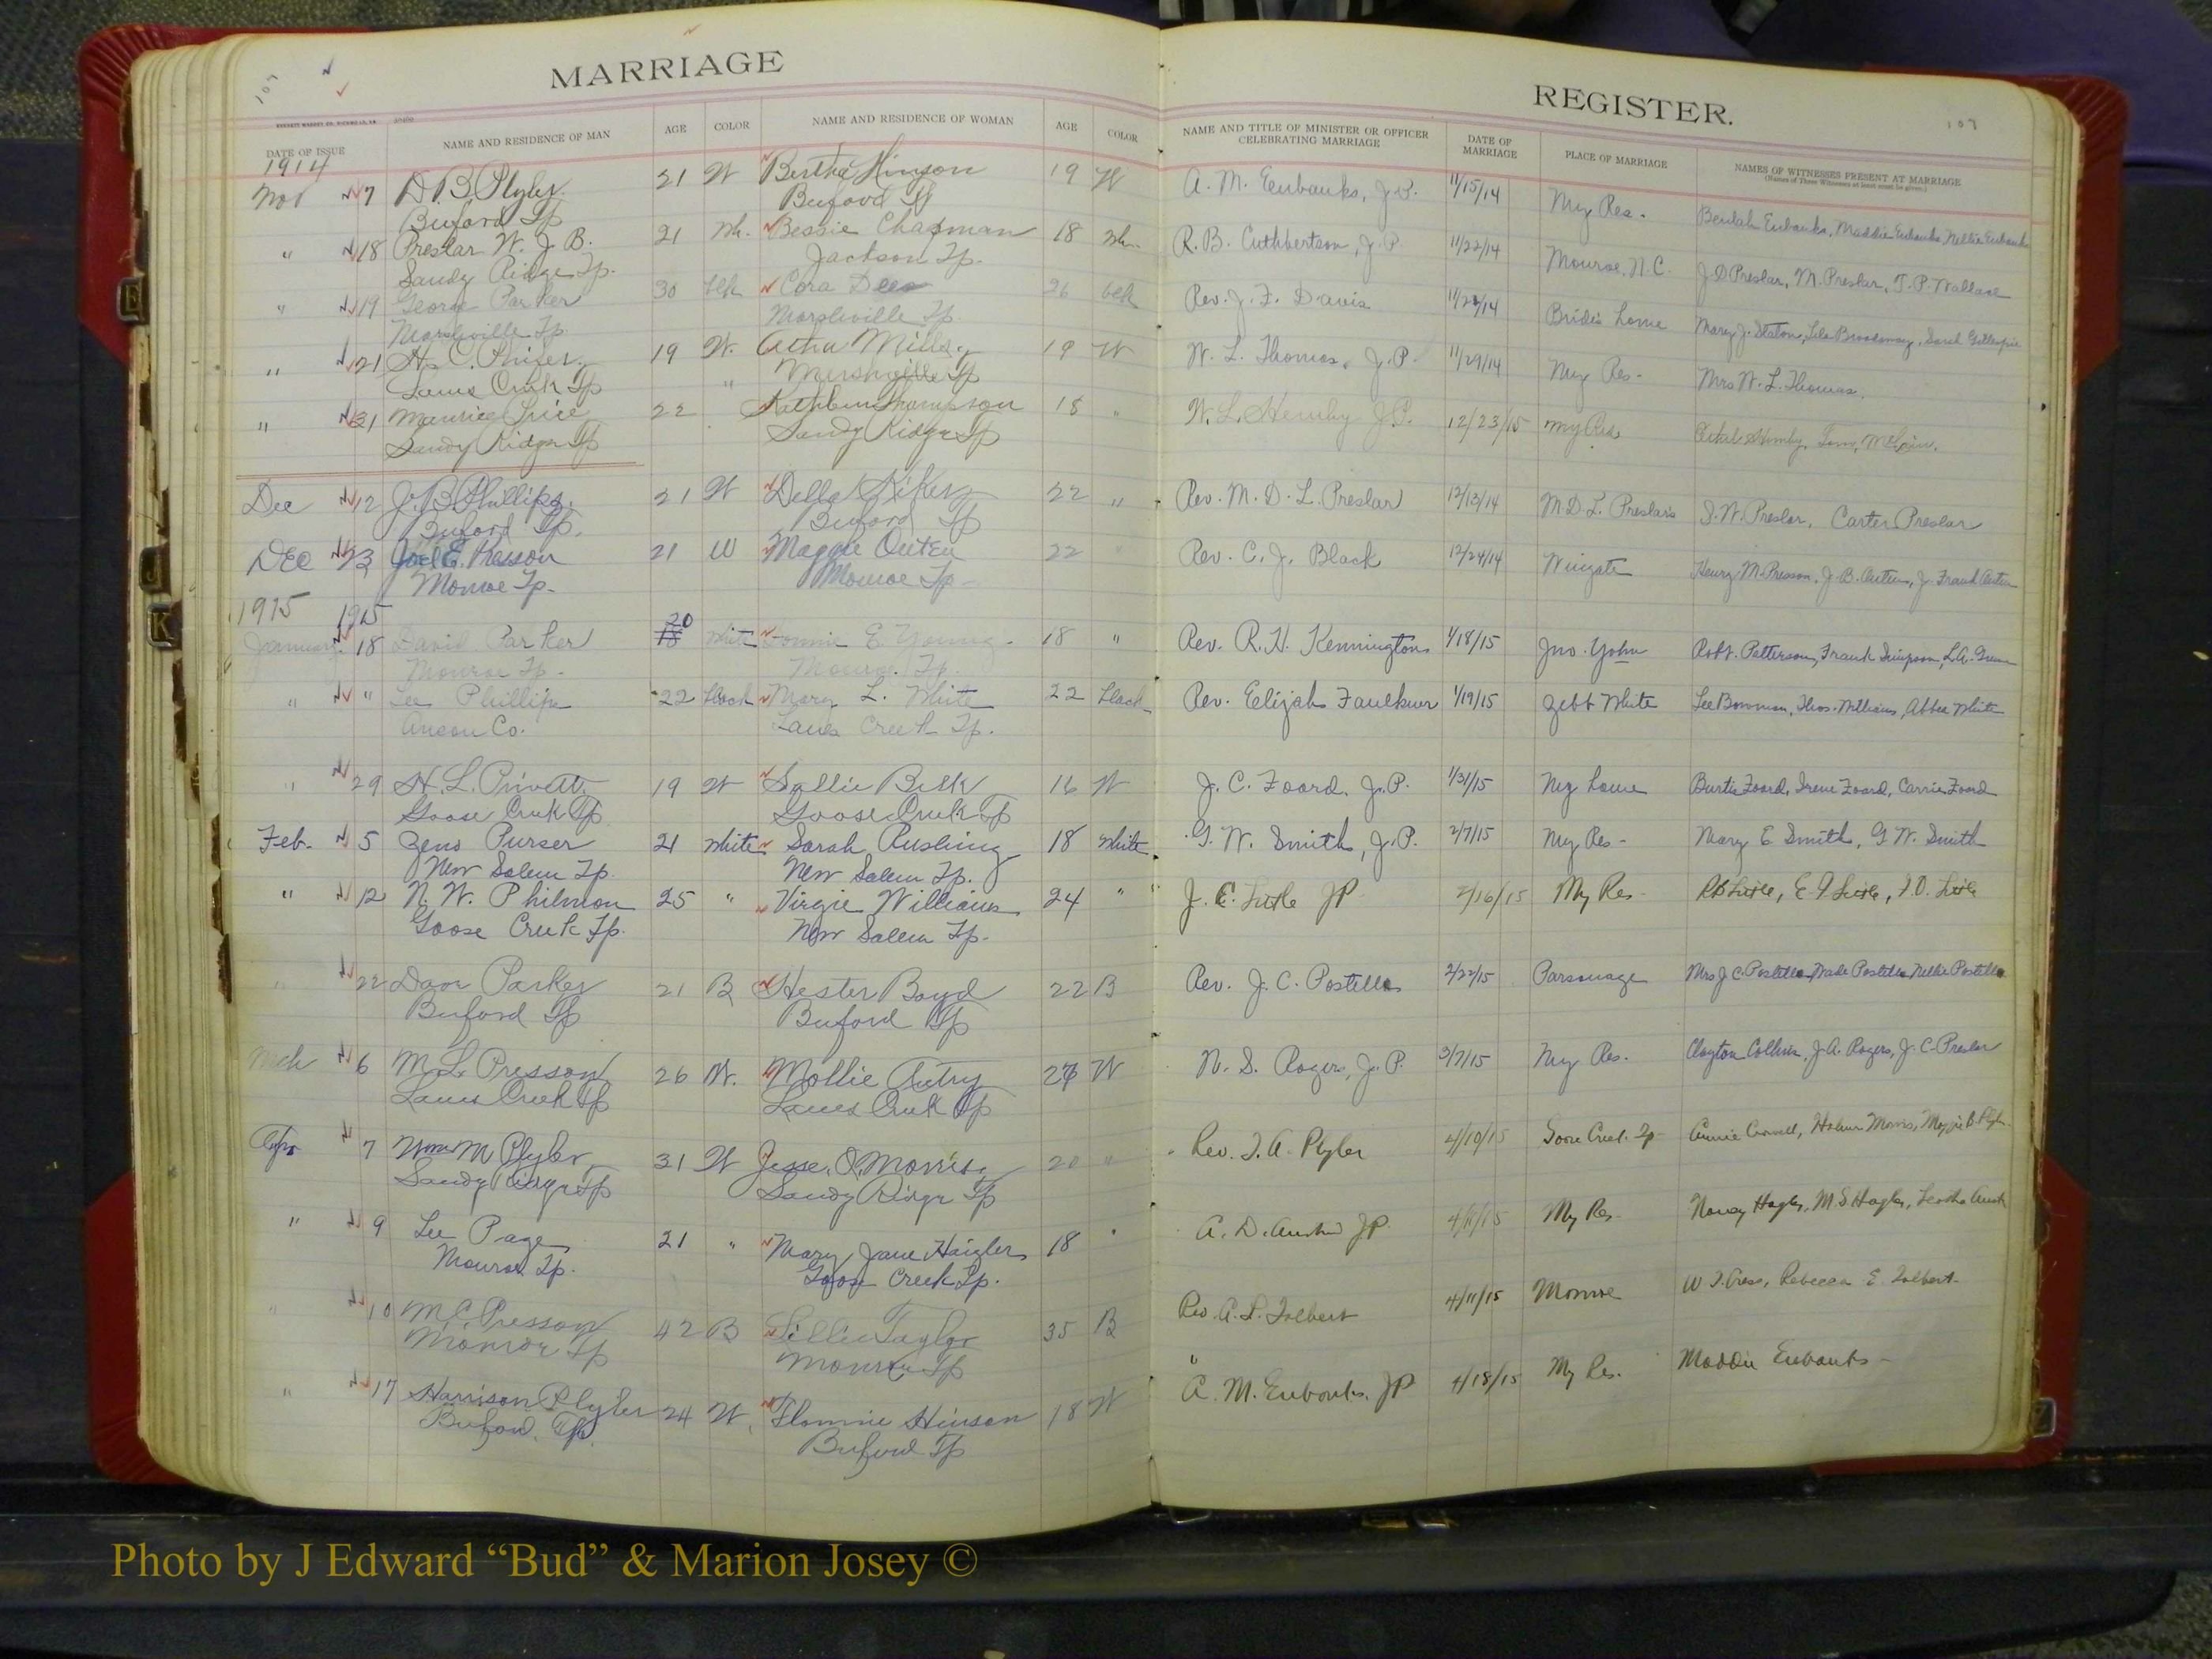 MARRIAGE
REGISTER.
107
107
DATE OF ISSUE
NAME AND RESIDENCE OF MAN
AGE
COLOR
NAME AND RESIDENCE OF WOMAN
AGE
COLOR
NAME AND TITLE OF MINISTER OR OFFICER
CELEBRATING MARRIAGE
DATE OF
MARRIAGE
PLACE OF MARRIAGE
NAMES OF WITNESSES PRESENT AT MARRIAGE
(Names of Three Witnesses at least must be given.)
1914
Nov 7 D. B. Plyler 21 W Bertha Hinson 19 W A. M. Eubanks, J.P. 11/15/14 My Res. Beulah Eubanks, Maddie Eubanks, Nellie Eubanks
Buford Tp Buford Tp
" 18 Preslar W. J. B. 21 Wh. Bessie Chapman 18 Wh. R. B. Cuthbertson, J.P. 11/22/14 Monroe, N.C. J. D Preslar, M. Preslar, T. P. Wallace
Sandy Ridge Tp. Jackson Tp.
" 19 George Parker 30 blk Cora Dees 26 blk Rev. J. F. Davis Bride's home Mary J. Staton, Lila Broadaway, Sarah Gillespie
Marshville Tp. Marshville Tp.
" 21 H. C. Phifer 19 W. Mills 19 W W. L. Thomas, J.P. 11/29/14 My Res- Mrs W. L. Thomas.
Lanes Creek Tp " Marshville Tp
" 21 Maurice Price 22 Kathleen Thompson 18 " W. L. Hemby J.P. 12/23/15 My Res
Sandy Ridge Tp Sandy Ridge Tp
Dec 12 J. B. Phillips 21 W Della Aikey 22 " Rev. M. D. L. Preslar 12/13/14 M. D. L. Preslar's S. W. Preslar, Carter Preslar
Buford Tp. Buford Tp
Dec 23 Joel E. Presson 21 W Maggie Outen 22 Rev. C. J. Black 12/24/14 Wingate Henry M. Presson, J. B. Outen, J. Frank Outen
Monroe Tp- Monroe Tp-
1915 1915
January 18 David Parker 20 White E Young 18 " Rev. R. H. Kennington 1/18/15 Jno. Yohn Robt. Patterson, Frank Simpson, L. A. Green
Monroe Tp- Monroe Tp-
" " Lee Phillips 22 black Mary L. White 22 black Rev. Eelijah Faulkner 1/19/15 Zebb White Lee Bowman, Thos. Williams, Abbee White
Anson Co. Lanes Creek Tp.
" 29 H. L. Privatt. 19 W Sallie Belk 16 W J. C. Foard, J.P. 1/31/15 My home Burtie Foard, Irene Foard, Carrie Foard
Goose Creek Tp Goose Creek Tp
Feb. 5 Zeno Purser 21 White Sarah Rushing 18 White G. W. Smith, J.P. 2/7/15 My Res- Mary E Smith, G W. Smith
New Salem Tp. New Salem Tp.
" 12 N. W. Philmon 25 " Virgie Williams 24 " J. E. Little JP 2/16/15 My Res Little, E Little, Little
Goose Creek Tp. New Salem Tp-
" 22 Dave Parker 21 B Hester Boyd 22 B Rev. J. C. Postelle 2/22/15 Parsonage Mrs J C. Postelle, Wade Postelle, Nellie Postelle
Buford Tp Buford Tp
Mch 6 M. L. Presson 26 W. Mollie Autry W N. S. Rogers, J.P. 3/7/15 My Res. Clayton Collins, J. A. Rogers, J. C. Preslar
Lanes Creek Tp Lanes Creek Tp
Apr 7 Wm M Plyler 31 W Jesse O. Morris 20 " Rev. J. A. Plyler 4/10/15 Goose Creek Tp-
Sandy Ridge Tp Sandy Ridge Tp
" 9 Lee Page 21 " Mary Jane Haigler 18 " A. D. Austin JP 4/11/15 My Res- Nancy Hagler, M. S Hagler,
Monroe Tp. Goose Creek Tp.
" 10 M. C. Presson 42 B Lillie Taylor 35 B Rev. A. L. Tolbert 4/11/15 Monroe Rebecca E. Tolbert.
Monroe Tp Monroe Tp
" 17 Harrison Plyler 24 W. Flonnie Hinson 18 W A. M. Eubanks. JP 4/18/15 My Res. Maddie Eubanks-
Buford. Tp. Buford Tp
E
J
K
Photo by J Edward “Bud” & Marion Josey ©